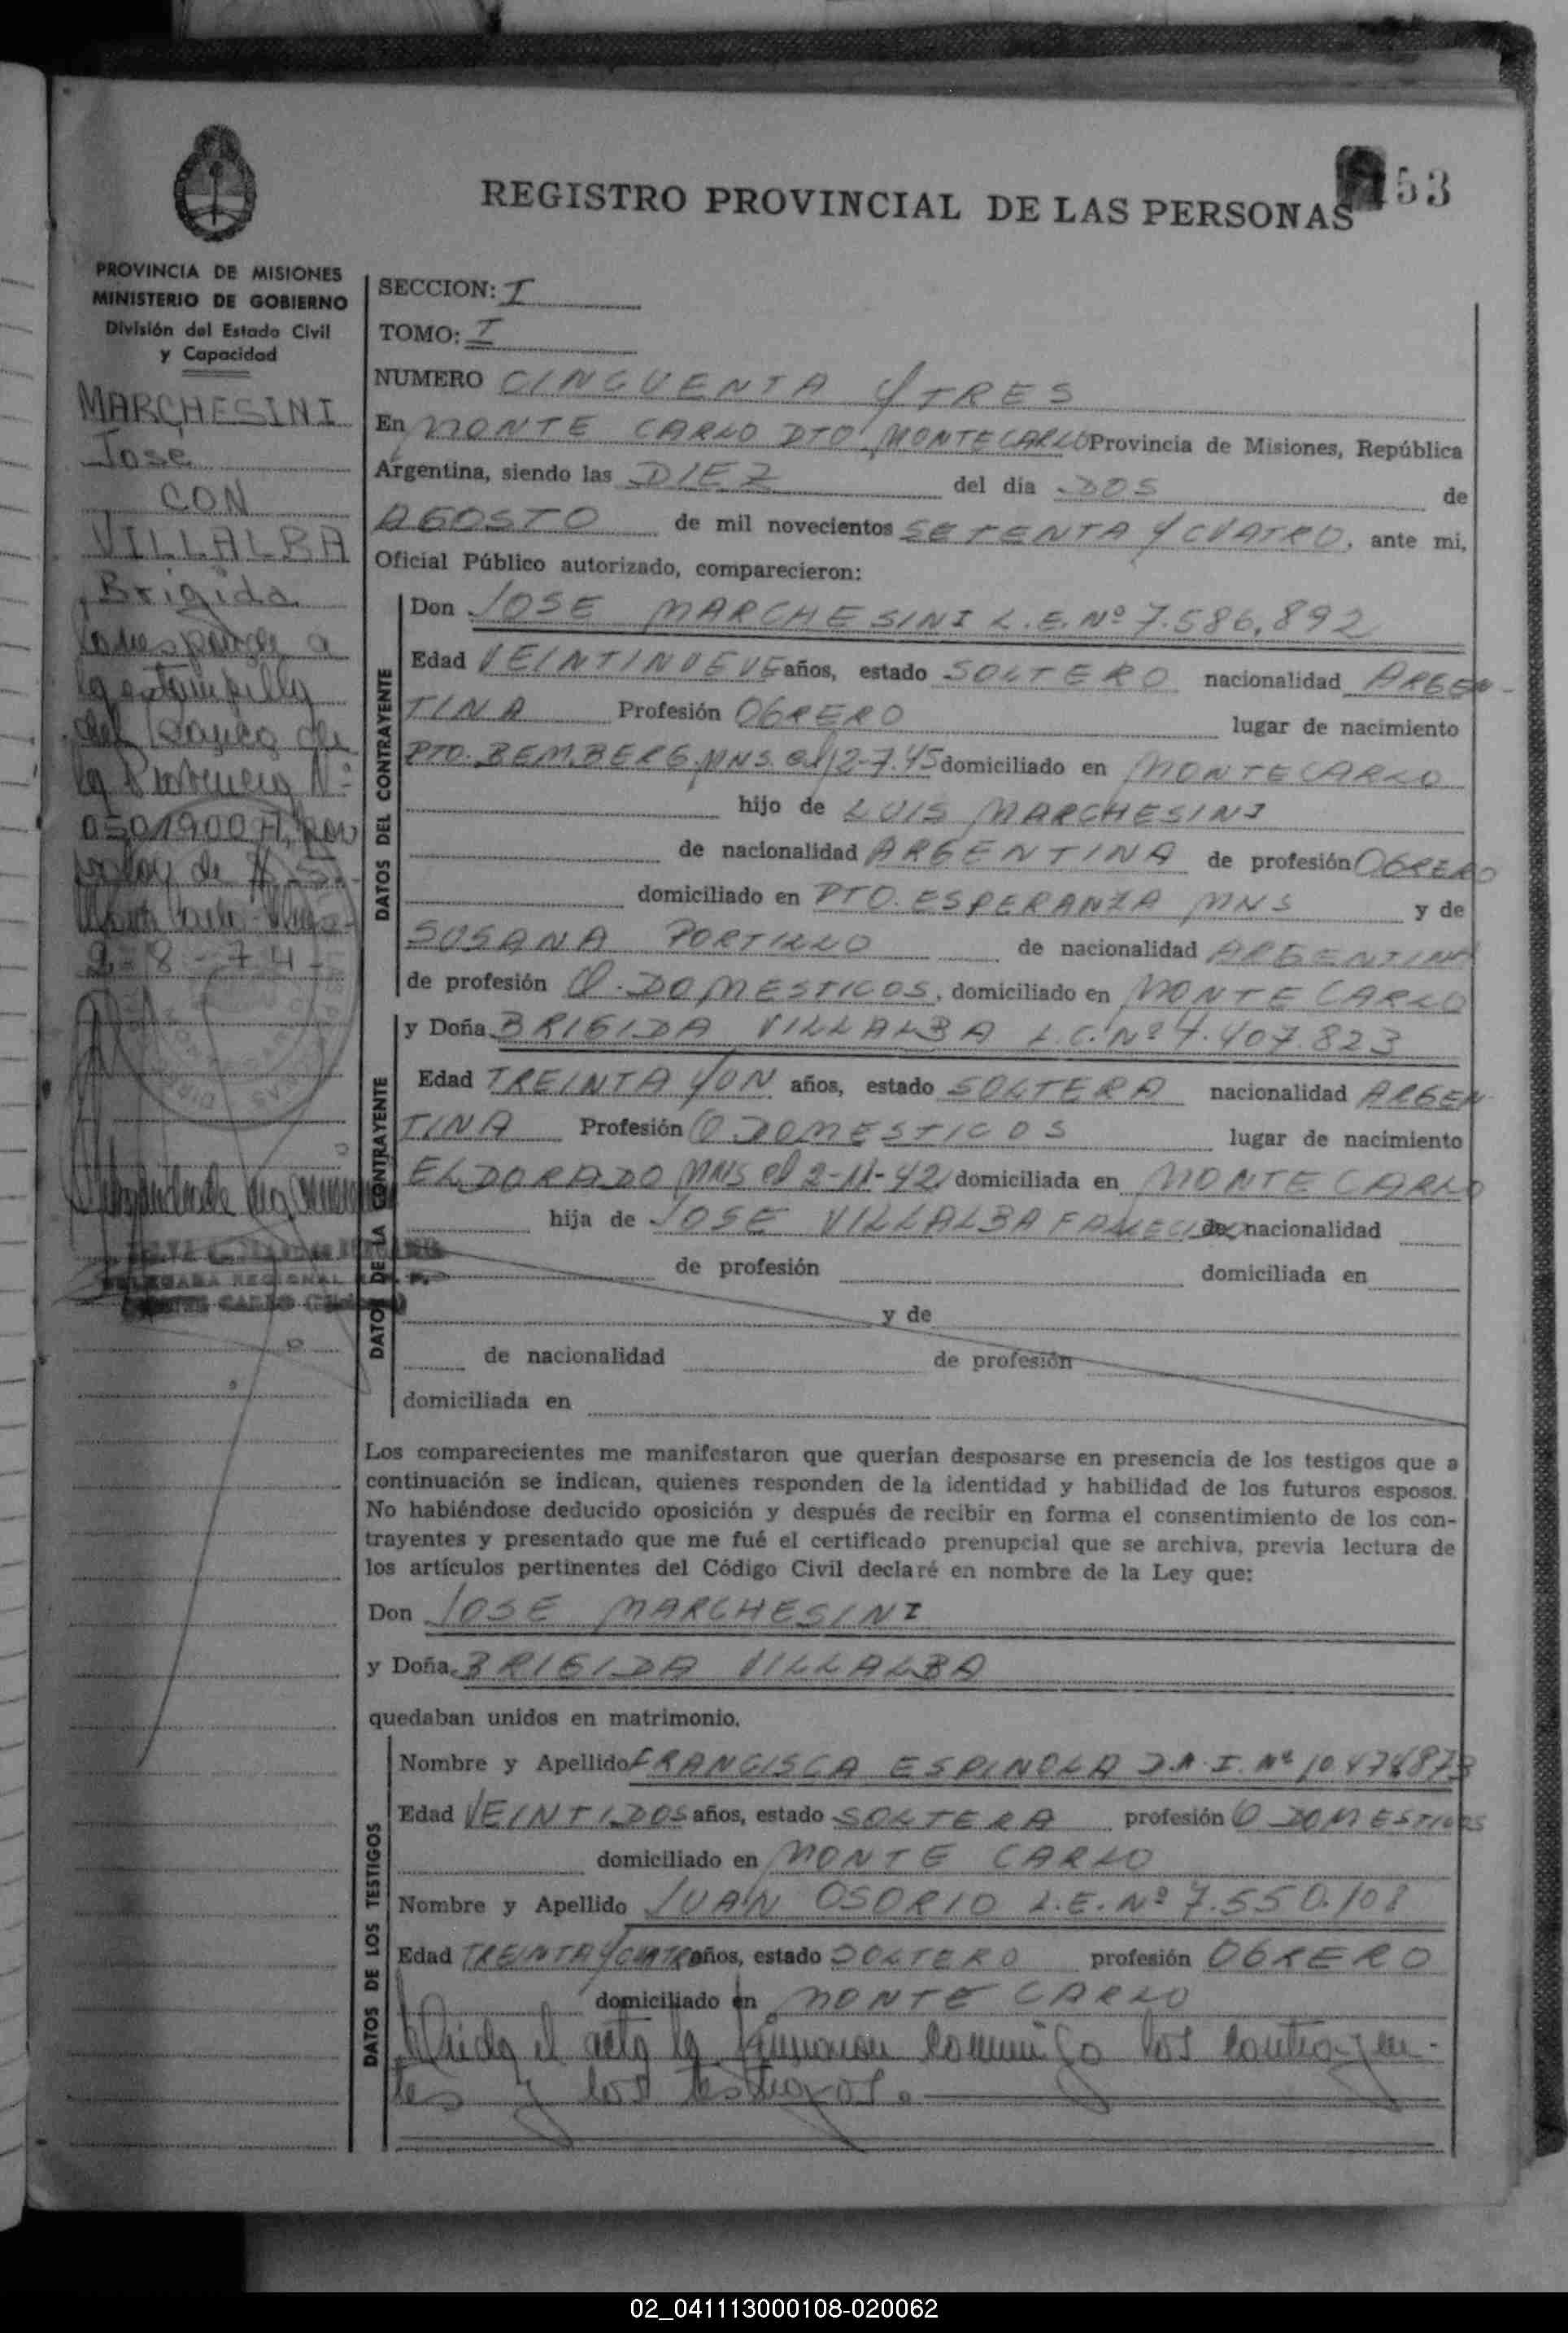 53
REGISTRO PROVINCIAL DE LAS PERSONAS
PROVINCIA DE MISIONES
MINISTERIO DE GOBIERNO
División del Estado Civil
y Capacidad
MARCHESINI
Jose
CON
VILLALBA
Brigida
Corresponde a
la estampilla
del Banco de
la Provincia Nº
0501900 por
valor de $ 5.-
2-8-74-
DELEGADA REGIONAL
SECCION: I
TOMO: I
NUMERO CINCUENTA Y TRES
En MONTE CARLO DTO MONTECARLO Provincia de Misiones, República
Argentina, siendo las DIEZ del dia DOS de
AGOSTO de mil novecientos SETENTA Y CUATRO, ante mi,
Oficial Público autorizado, comparecieron:
DATOS DEL CONTRAYENTE
Don JOSE MARCHESINI L.E.Nº 7.586.892
Edad VEINTINUEVE años, estado SOLTERO nacionalidad ARGEN-
TINA Profesión OBRERO lugar de nacimiento
PTO. BEMBERG MNS. el 12-7-45 domiciliado en MONTECARLO
hijo de LUIS MARCHESINI
de nacionalidad ARGENTINA de profesión OBRERO
domiciliado en PTO. ESPERANZA MNS y de
SUSANA PORTILLO de nacionalidad ARGENTINA
de profesión Q. DOMESTICOS, domiciliado en MONTE CARLO
DATOS DE LA CONTRAYENTE
y Doña BRIGIDA VILLALBA L.C.Nº 4.407.823
Edad TREINTA Y UN años, estado SOLTERA nacionalidad ARGEN
TINA Profesión Q DOMESTICOS lugar de nacimiento
ELDORADO MNS el 2-11-42 domiciliada en MONTE CARLO
hija de JOSE VILLALBA FALLECIDO de nacionalidad
de profesión domiciliada en
y de
de nacionalidad de profesión
domiciliada en
Los comparecientes me manifestaron que querían desposarse en presencia de los testigos que a
continuación se indican, quienes responden de la identidad y habilidad de los futuros esposos.
No habiéndose deducido oposición y después de recibir en forma el consentimiento de los con-
trayentes y presentado que me fué el certificado prenupcial que se archiva, previa lectura de
los artículos pertinentes del Código Civil declaré en nombre de la Ley que:
Don JOSE MARCHESINI
y Doña BRIGIDA VILLALBA
quedaban unidos en matrimonio.
DATOS DE LOS TESTIGOS
Nombre y Apellido FRANCISCA ESPINOLA D.N.I. Nº 10.474873
Edad VEINTIDOS años, estado SOLTERA profesión Q DOMESTICOS
domiciliado en MONTE CARLO
Nombre y Apellido JUAN OSORIO L.E.Nº 7.550.108
Edad TREINTA Y CUATRO años, estado SOLTERO profesión OBRERO
domiciliado en MONTE CARLO
Leida el acta la firmaron conmigo los contrayen-
tes y los testigos.
02_041113000108-020062